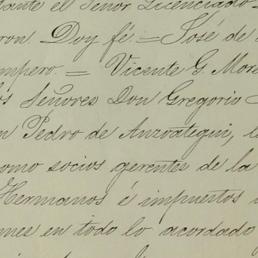 ante el Señor Licenciado
Doy fé = José de
mpero. = Vicente G. More
s Señores Don Gregorio
n Pedro de Anzoategui,
omo socios gerentes de la
Hermanos é impuestos
nes en todo lo acordado